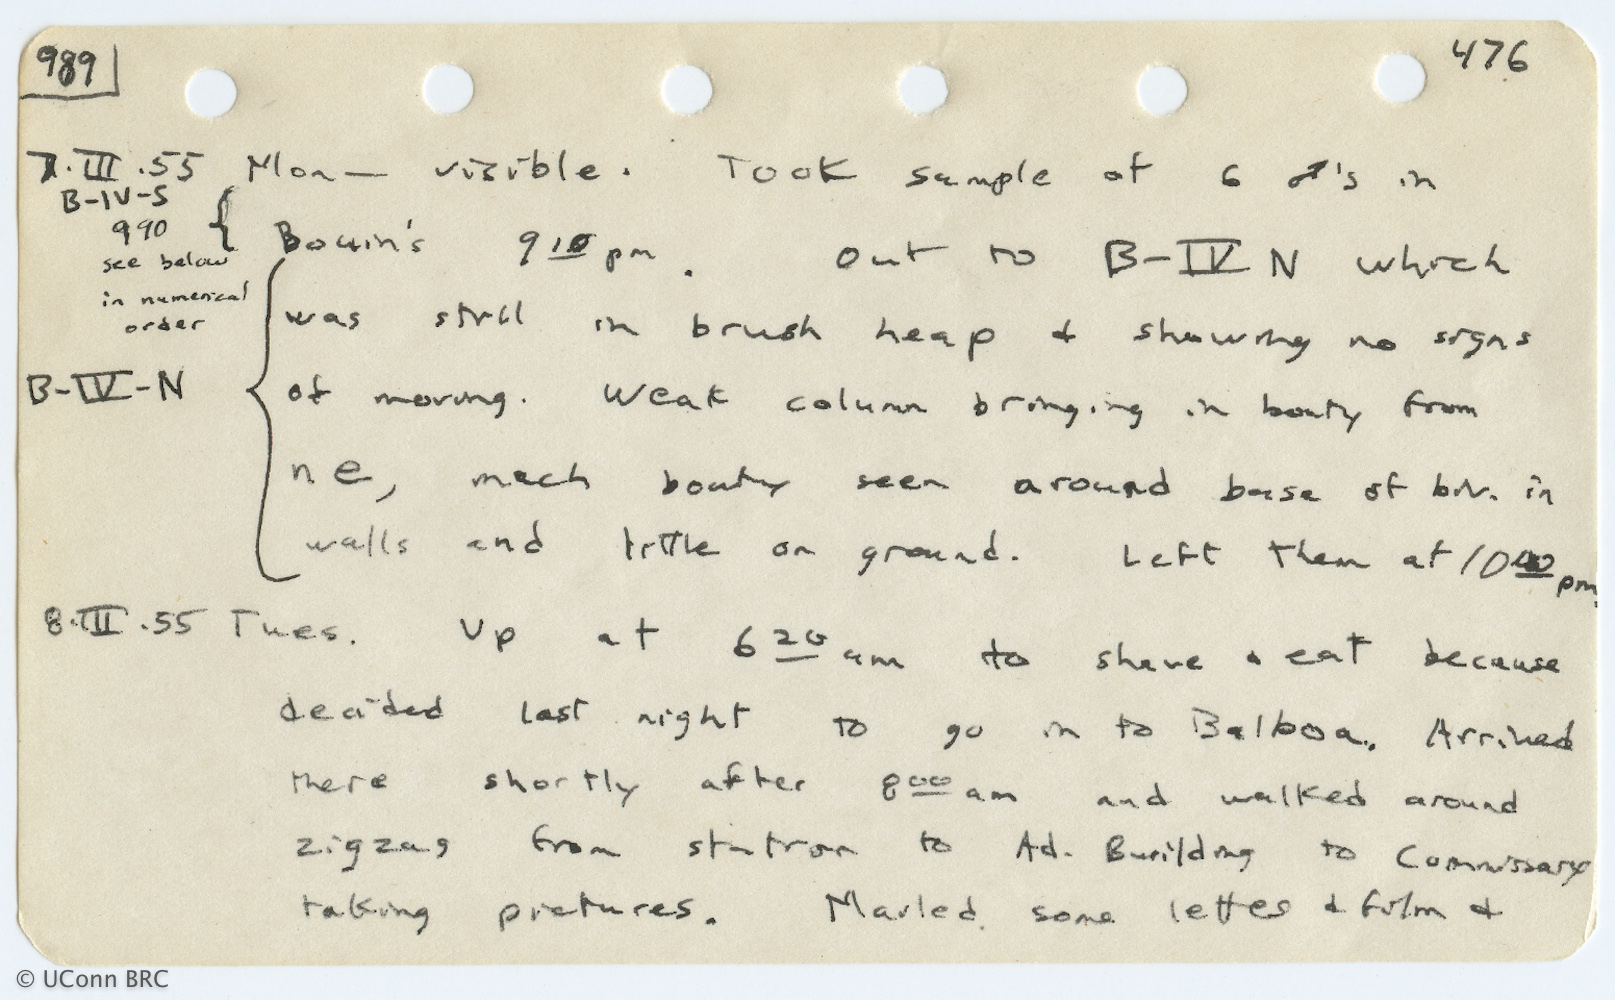 989
476
7.III.55 Mon— visible. Took sample of 6 ♂'s in
B-IV-S
990
see below
in numerical
order
Bouin's 9 10 pm. Out to B-IV N which
was still in brush heap & showing no signs
B-IV-N
of moving. Weak column bringing in booty from
ne, much booty seen around base of biv. in
walls and little on ground. Left them at 10 40 pm.
8.III.55 Tues. Up at 6 20 am to shave & eat because
decided last night to go in to Balboa. Arrived
there shortly after 8 00 am and walked around
zigzag from station to Ad. Building to Commissary
taking pictures. Mailed some letters & film &
© UConn BRC